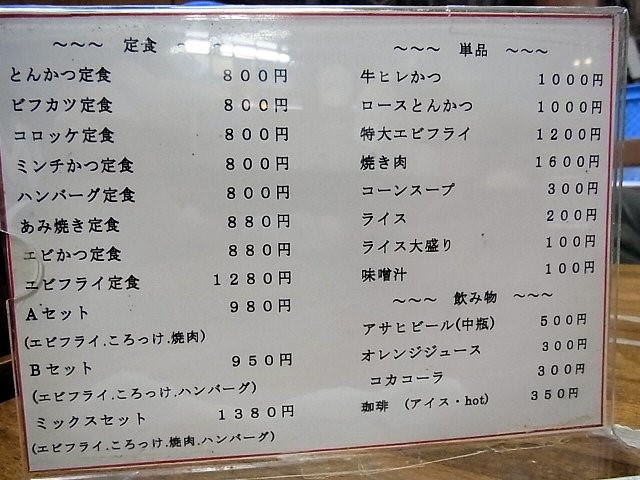 ～～～ 定食 ～～～
とんかつ定食 ８００円
ビフカツ定食 ８００円
コロッケ定食 ８００円
ミンチかつ定食 ８００円
ハンバーグ定食 ８００円
あみ焼き定食 ８８０円
エビかつ定食 ８８０円
エビフライ定食 １２８０円
Ａセット ９８０円
(エビフライ.ころっけ.焼肉)
Ｂセット ９５０円
(エビフライ.ころっけ.ハンバーグ)
ミックスセット １３８０円
(エビフライ.ころっけ.焼肉.ハンバーグ)
～～～ 単品 ～～～
牛ヒレかつ １０００円
ロースとんかつ １０００円
特大エビフライ １２００円
焼き肉 １６００円
コーンスープ ３００円
ライス ２００円
ライス大盛り １００円
味噌汁 １００円
～～～ 飲み物 ～～～
アサヒビール(中瓶) ５００円
オレンジジュース ３００円
コカコーラ ３００円
珈琲 (アイス・hot) ３５０円